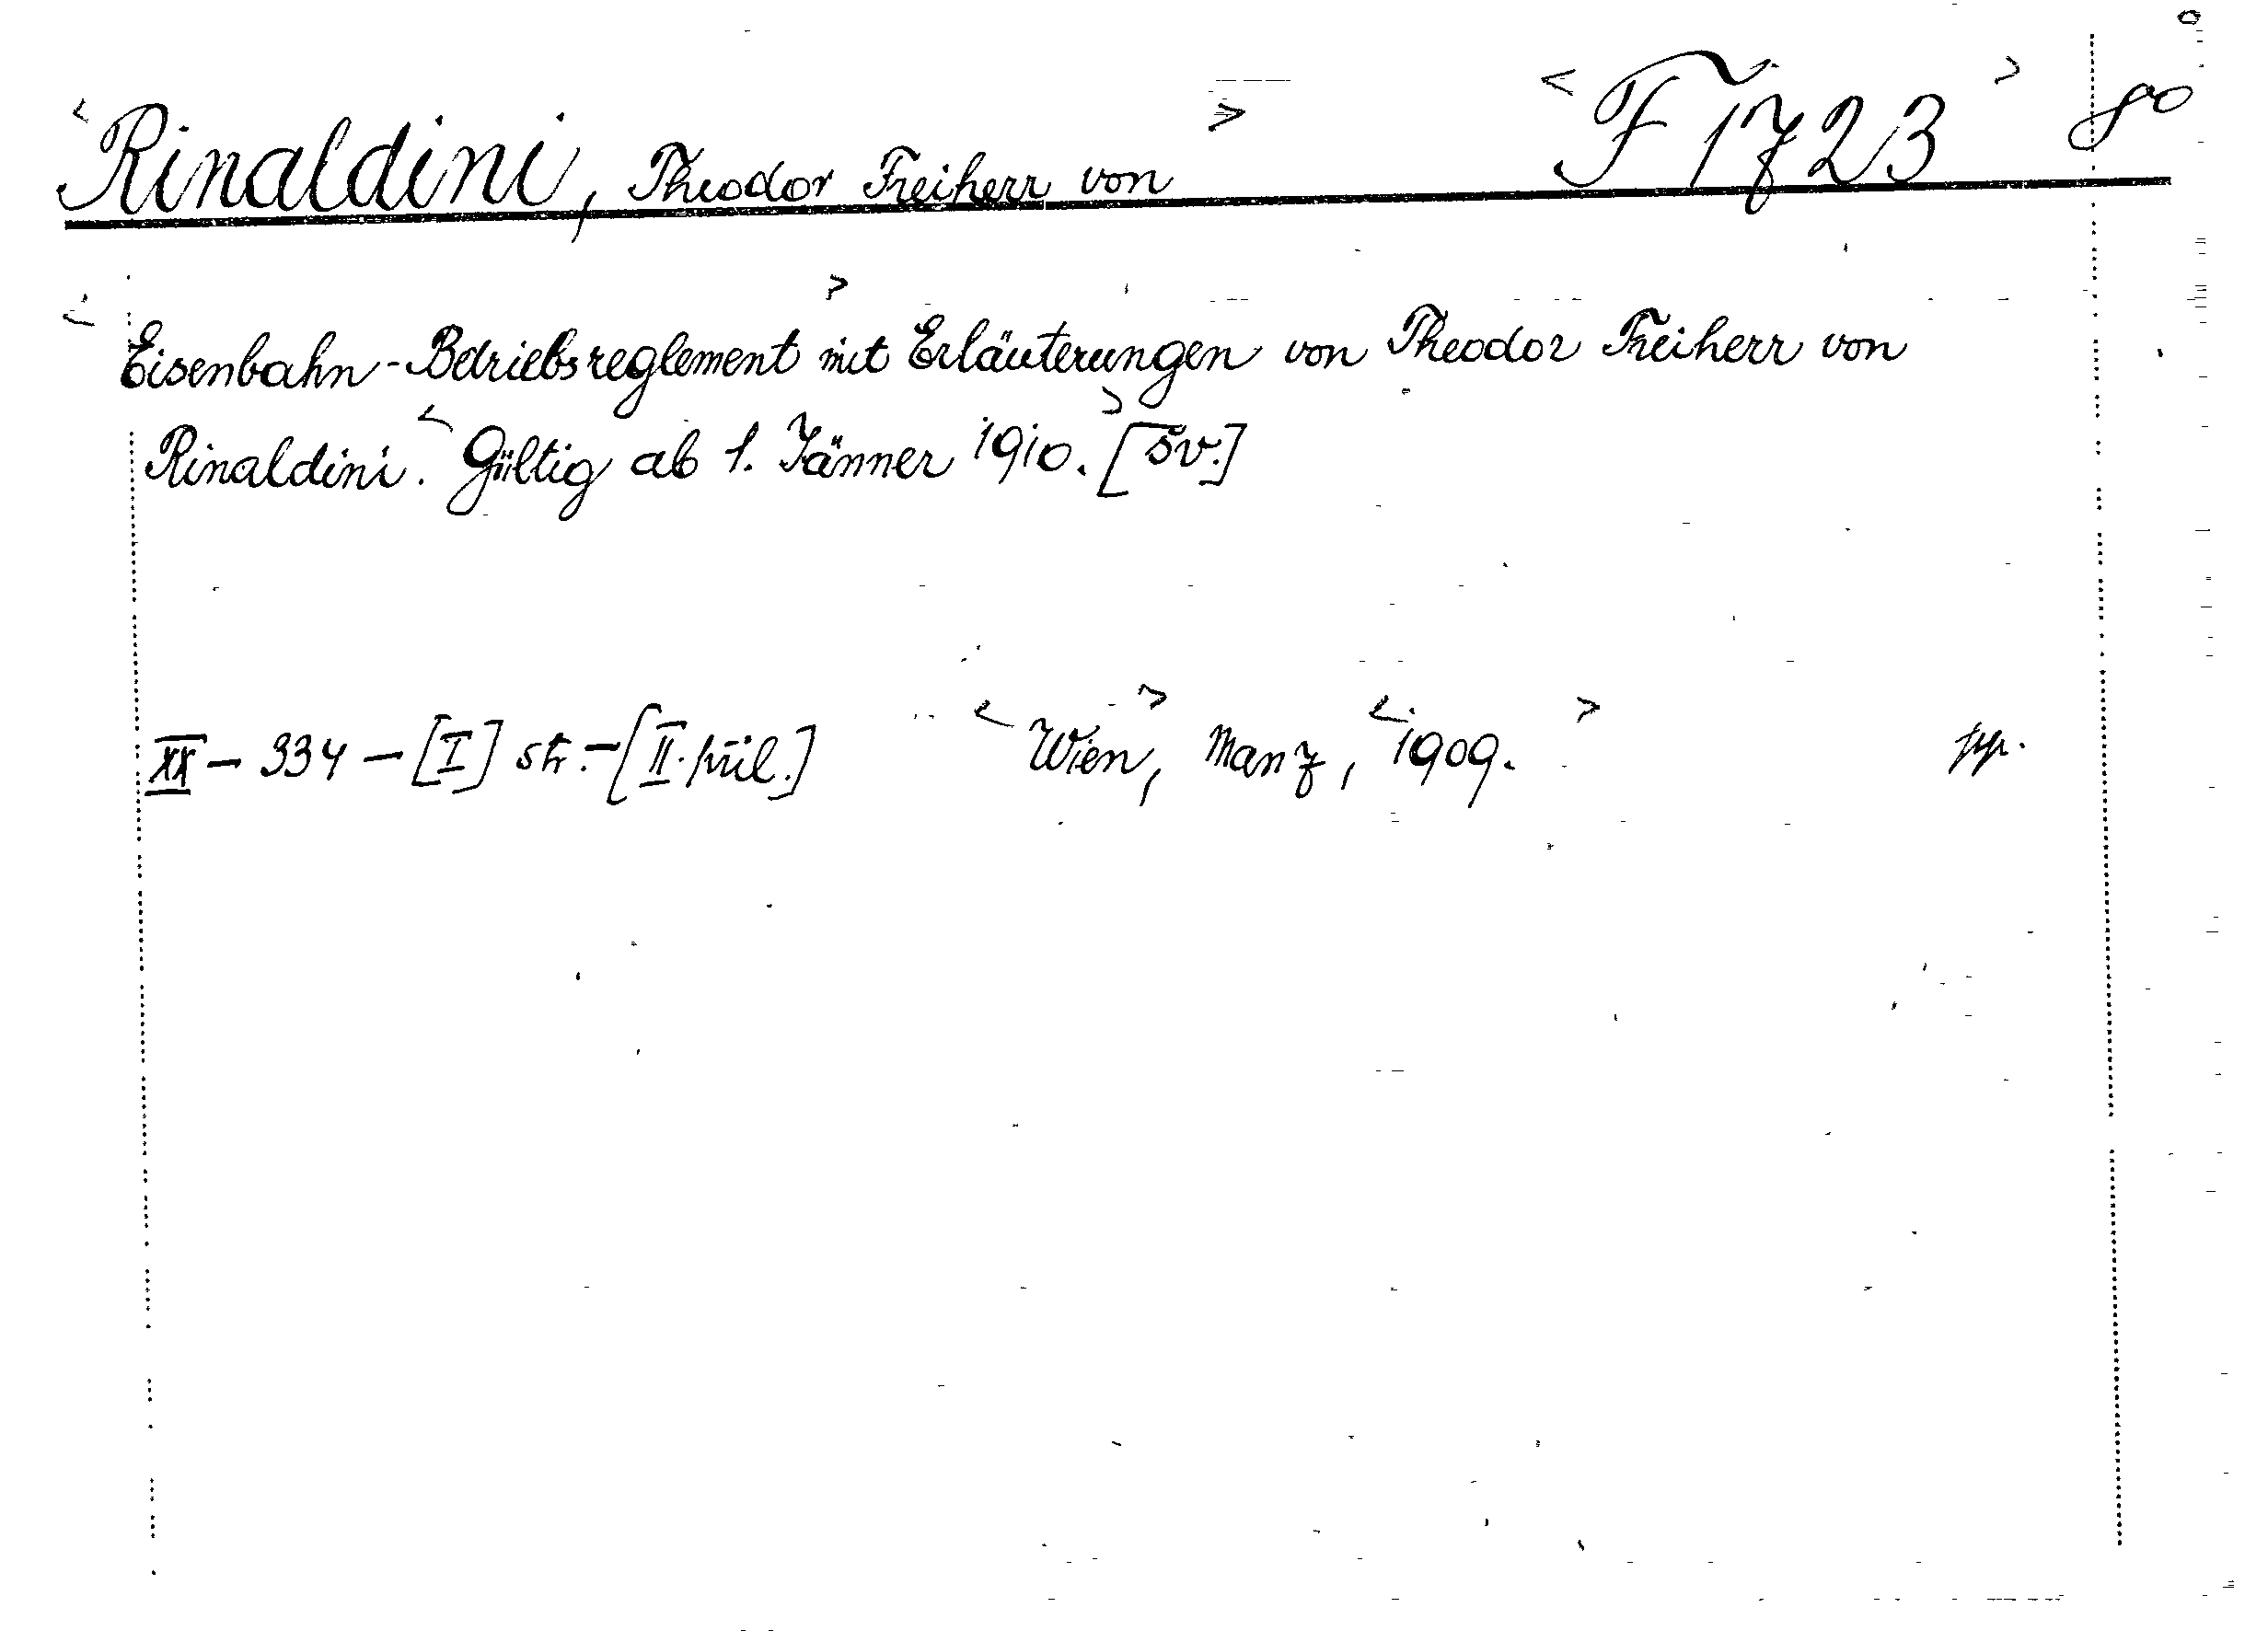 <Rinaldini, Theodor Freiherr von> <F 1723> 8°
<Eisenbahn-Betriebsreglement> mit Erläuterungen von Theodor Freiherr von
Rinaldini. <Gültig ab 1. Jänner 1910.> [Sv.]
XX – 334 – [I] str. – [II. příl.] <Wien>, Manz, <1909.> pp.